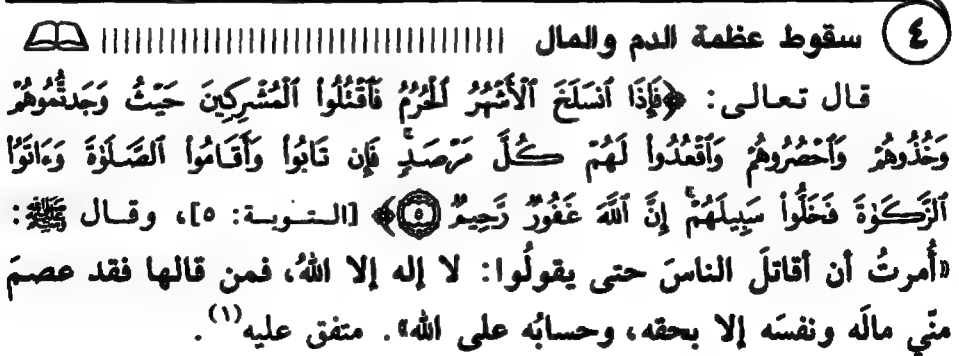 ٤ سقوط عظمة الدم والمال
قال تعالى: ﴿فَإِذَا ٱنسَلَخَ ٱلْأَشْهُرُ ٱلْحُرُمُ فَٱقْتُلُوا۟ ٱلْمُشْرِكِينَ حَيْثُ وَجَدتُّمُوهُمْ
وَخُذُوهُمْ وَٱحْصُرُوهُمْ وَٱقْعُدُوا۟ لَهُمْ كُلَّ مَرْصَدٍ ۚ فَإِن تَابُوا۟ وَأَقَامُوا۟ ٱلصَّلَوٰةَ وَءَاتَوُا۟
ٱلزَّكَوٰةَ فَخَلُّوا۟ سَبِيلَهُمْ ۚ إِنَّ ٱللَّهَ غَفُورٌ رَّحِيمٌ ٥﴾ [التوبة: ٥]، وقال ﷺ:
«أُمرتُ أن أقاتلَ الناسَ حتى يقولُوا: لا إله إلا اللهُ، فمن قالها فقد عصمَ
منّي مالَه ونفسَه إلا بحقه، وحسابُه على الله». متفق عليه(١).